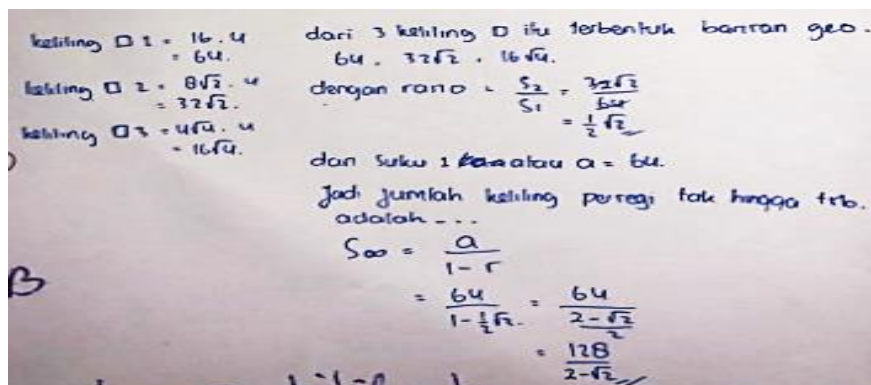 keliling □ 1 = 16 . 4
= 64.
keliling □ 2 = 8√2 . 4
= 32√2.
keliling □ 3 = 4√4 . 4
= 16√4.
dari 3 keliling □ itu terbentuk barisan geo.
64 , 32√2 , 16√4.
dengan rasio = S2/S1 = 32√2/64
= 1/2 √2
dan suku 1 atau a = 64.
Jadi jumlah keliling persegi tak hingga trb.
adalah ...
S∞ = a/(1 - r)
= 64/(1 - 1/2 √2) = 64/((2 - √2)/2)
= 128/(2 - √2)